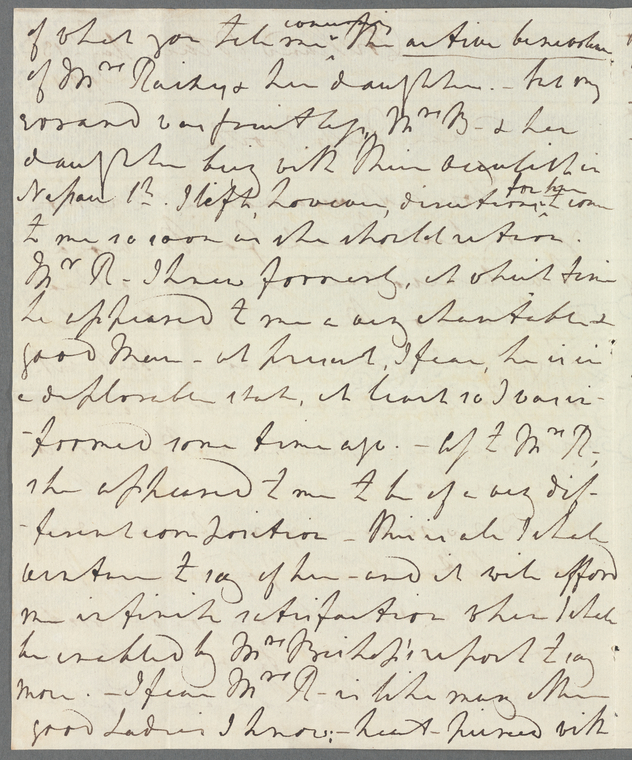 of what you tell me concerning the active benevolence
of Mrs R & her daughter. – but my
errand was fruitless, Mrs B- & her
daughter being with their oculist in
Nassau St. I left, however, directions for her to come
to me so soon as she should return.
Mr R- I knew formerly, at which time
he appeared to me a very charitable &
good Man – at present, I fear, he is in
a deplorable state, at least so I was in-
-formed some time ago. – As to Mrs R-,
she appeared to me to be of a very dif-
-ferent composition – this is all I shall
venture to say of her – and it will afford
me infinite satisfaction when I shall
be enabled by Mrs Bishop's report to say
more. – I fear Mrs R- is like many other
good Ladies I know; – heart- with